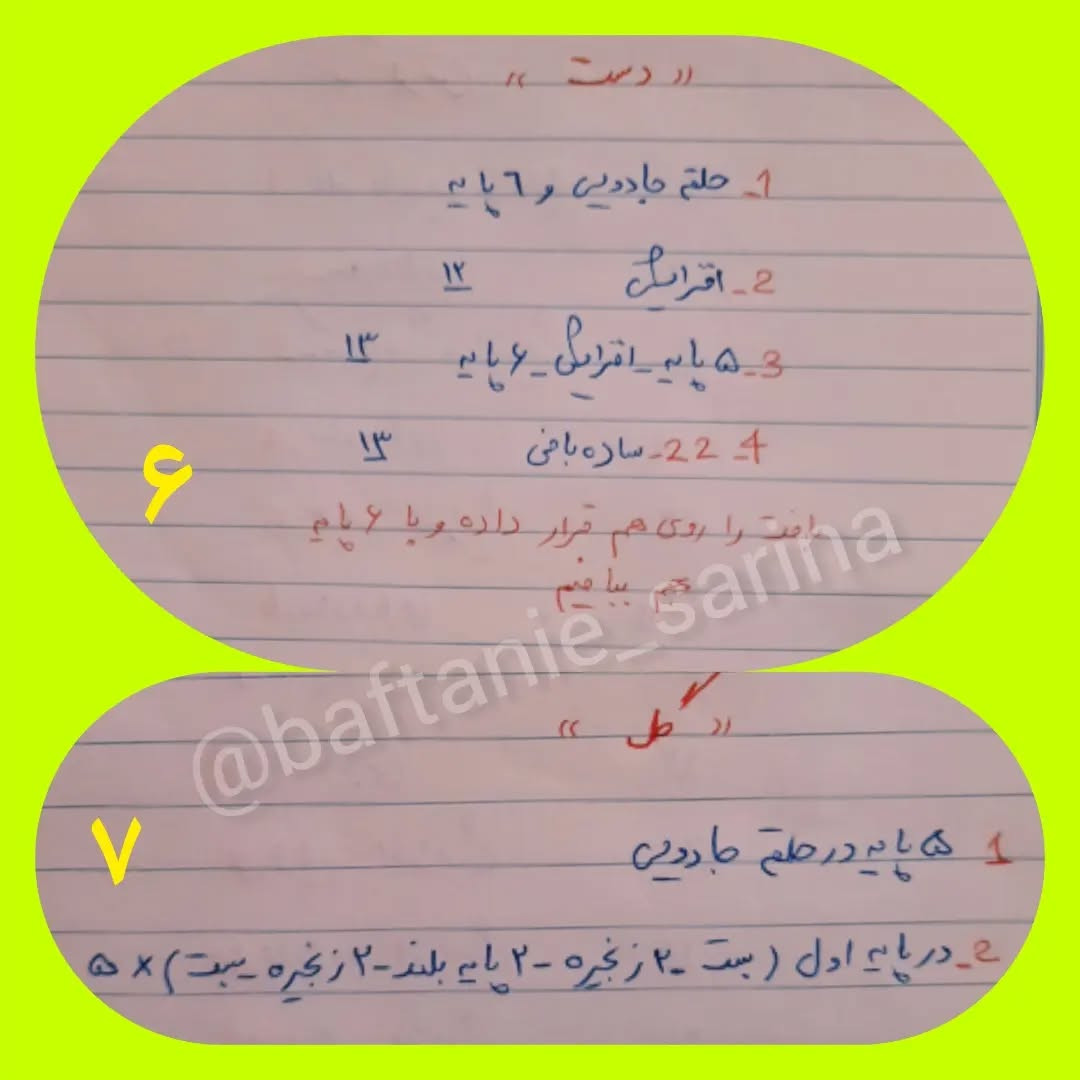 « دست »
1_ حلقه جادویی و ٦ پایه
2_ افزایش ۱۲
3_ ۵ پایه _ افزایش _ ۶ پایه ۱۳
4_ 22_ ساده بافی ۱۳
بافت را روی هم قرار داده و با ۶ پایه
بهم ببافیم
۶
@baftanie_sarina
« گل »
1 ۵ پایه در حلقه جادویی
۷
2_ در پایه اول ( بست _ ۲ زنجیره _ ۲ پایه بلند _ ۲ زنجیره _ بست ) × ۵